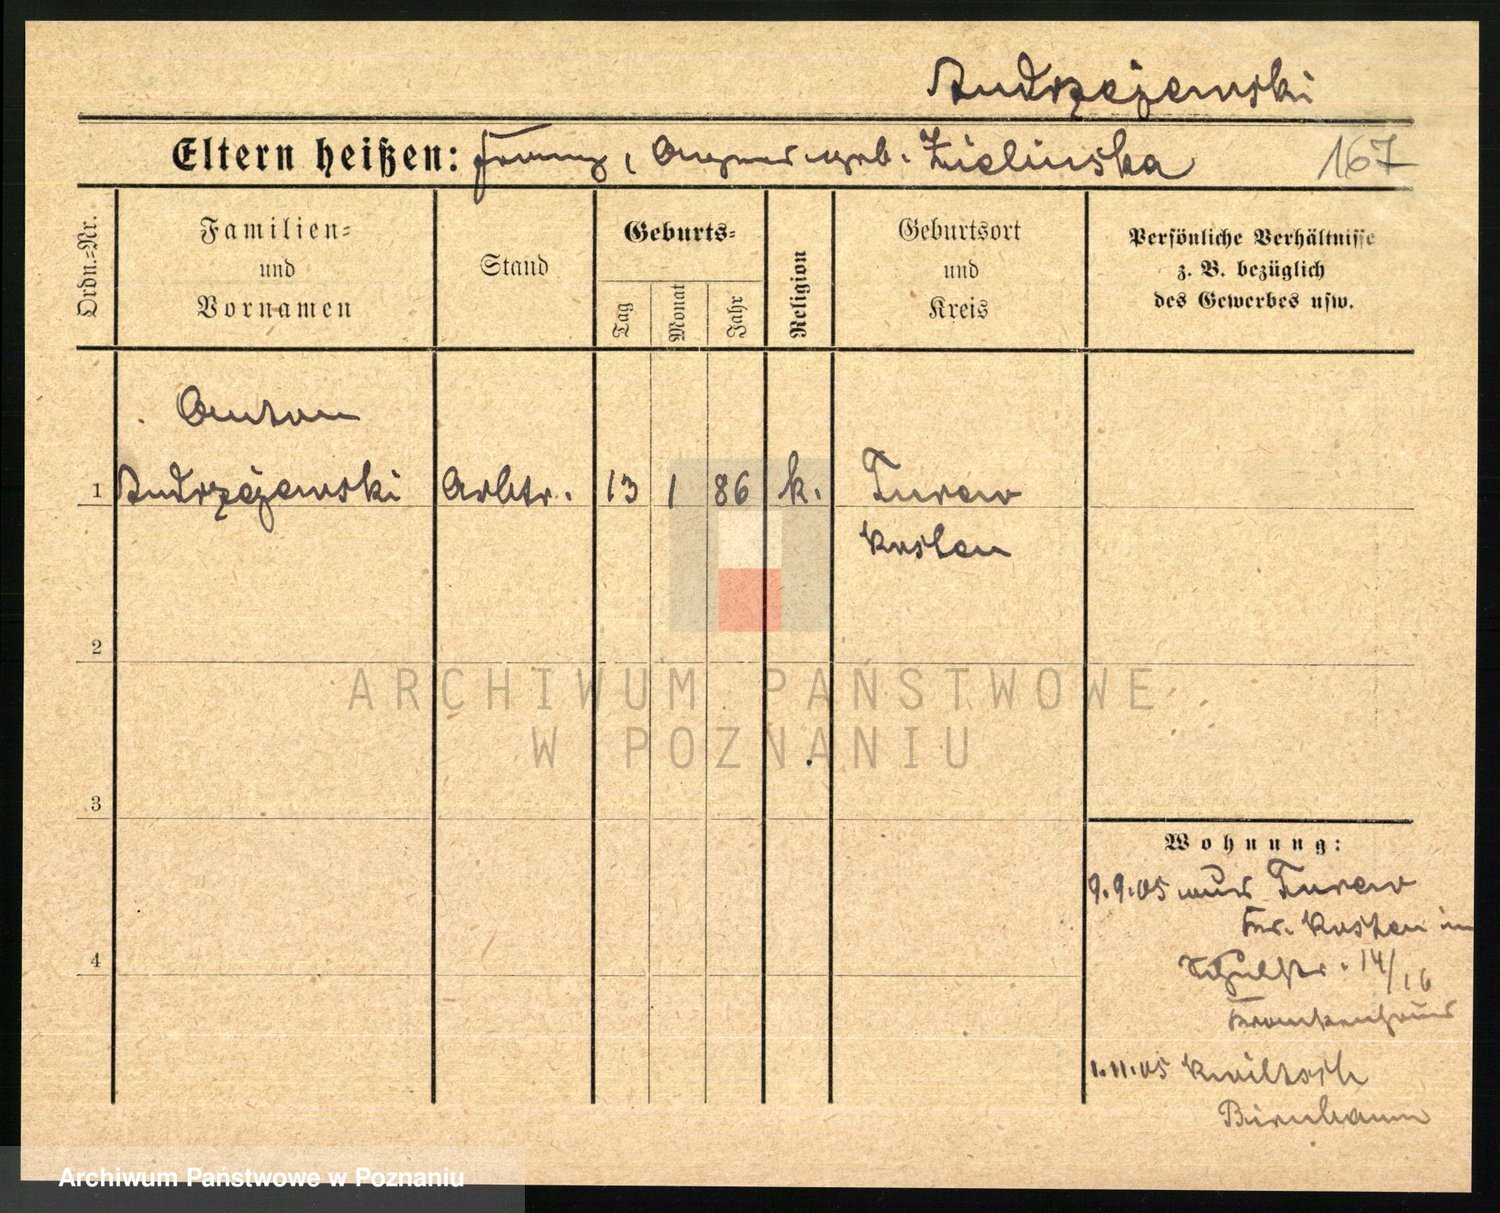 Andrzejewski
Eltern heißen: Franz, Agnes geb. Zielinska
167
Ordn.-Nr.
Familien-
und
Vornamen
Stand
Geburts-
Tag
Monat
Jahr
Religion
Geburtsort
und
Kreis
Persönliche Verhältnisse
z. B. bezüglich
des Gewerbes usw.
Anton
1 Andrzejewski Arbtr. 13 1 86 k. Turew
Kosten
2
ARCHIWUM PAŃSTWOWE
W POZNANIU
3
Wohnung:
9.9.05 aus Turew
Kr. Kosten in
Schulstr. 14/16
4
Krankenhaus
1.11.05 Kwiltsch
Birnbaum
Archiwum Państwowe w Poznaniu